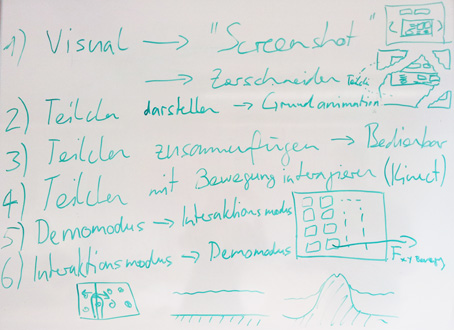 1) Visual → "Screenshot"
→ Zerschneiden Teilch
2) Teilchen darstellen → Grundanimation
3) Teilchen zusammenfügen → Bedienbar
4) Teilchen mit Bewegung interagieren (Kinect)
5) Demomodus → Interaktionsmodus
6) Interaktionsmodus → Demomodus